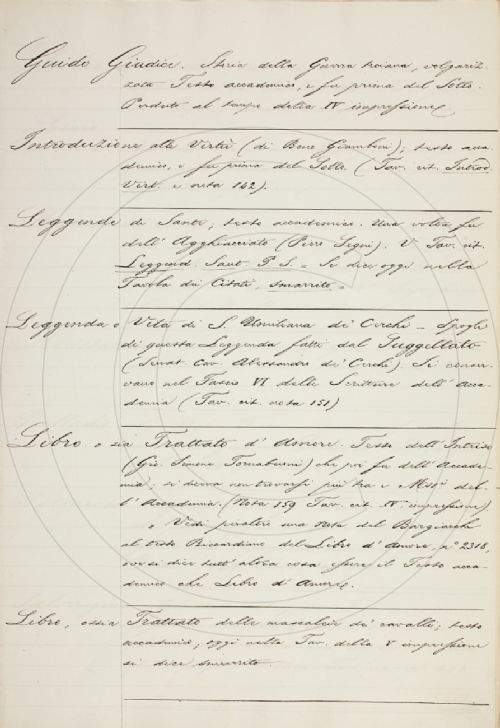 Guido Giudice. Storia della Guerra troiana, volgariz-
zata Testo accademico, e fu prima del Sollo.
Perduto al tempo della IV impressione.
Introduzione alle Virtù (di Bono Giamboni); testo acca-
demico, e fu prima del Sollo (Tav. cit. Introd.
Virt. e nota 142).
Leggende di Santi; testo accademico. Una volta fu
dell' Agghiacciato (Piero Segni). V. Tav. cit.
Leggend. Sant. P. S. = Si dice oggi nella
Tavola dei Citati, smarrito. =
Leggenda o Vita di S. Umiliana de' Cerchi = Spogli
di questa Leggenda fatti dal Suggellato
(Senat. Cav. Alessandro de' Cerchi) Si conser-
vano nel Fascio VI delle Scritture dell' Acca-
demia (Tav. cit. nota 151)
Libro o sia Trattato d' Amore. Testo dell' Intriso
(Gio. Simone Tornabuoni) che poi fu dell' Accade-
mia; si diceva non trovarsi più tra i Mss. del-
l' Accademia. (Nota 159 Tav. cit. IV. impressione)
Vedi peraltro una nota del Bargiacchi
al testo Riccardiano del Libro d' Amore, n.° 2318,
ove si dice tutt' altra cosa essere il Testo acca-
demico che Libro d' Amore.
Libro, ossia Trattato delle mascalcie dei cavalli; testo
accademico; oggi nella Tav. della V impressione
si dice smarrito.